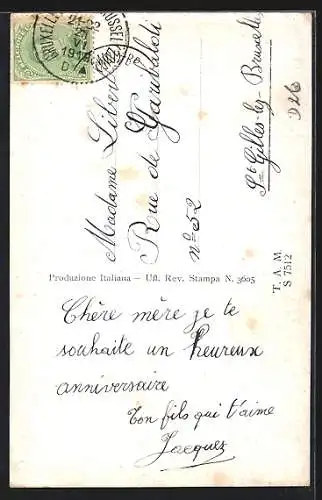 Madame Libert
Rue de Garibaldi
n° 52
St Gilles-lez-Bruxelles
D26
Produzione Italiana – Uff. Rev. Stampa N. 3605
T. A. M.
S 7512
Chère mère je te
souhaite un heureux
anniversaire
Ton fils qui t'aime
Jacques